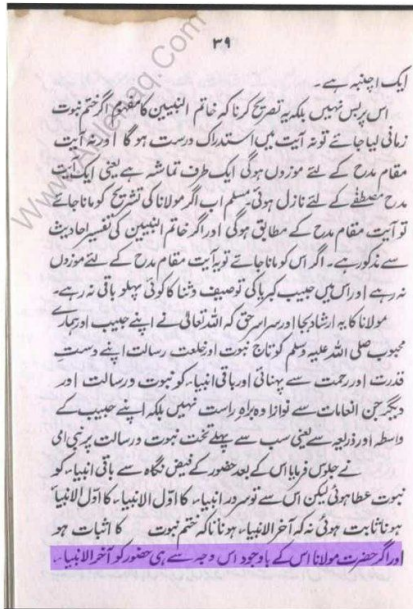 ۳۹
ایک اچنبہ ہے۔
اس پر بس نہیں بلکہ یہ تصریح کرنا کہ خاتم النبیین کا مفہوم اگر ختم نبوت
زمانی لیا جائے تو نہ آیت میں استدراک درست ہو گا اور نہ آیت
مقام مدح کے لئے موزوں ہوگی ایک طرف تماشہ ہے یعنی ایک آیت
مدح مصطفےٰ کے لئے نازل ہوئی۔ مسلم اب اگر مولانا کی تشریح کو مانا جائے
تو آیت مقام مدح کے مطابق ہوگی اور اگر خاتم النبیین کی تفسیر احادیث
سے مذکور ہے۔ اگر اس کو مانا جائے تو یہ آیت مقام مدح کے لئے موزوں
نہ رہے اور اس میں حبیب کبریا کی توصیف و ثنا کا کوئی پہلو باقی نہ رہے۔
مولانا کا یہ ارشاد بجا اور سراسر حق کہ اللہ تعالیٰ نے اپنے حبیب اور ہمارے
محبوب صلی اللہ علیہ وسلم کو تاج نبوت اور خلعت رسالت اپنے دست
قدرت اور رحمت سے پہنائی اور باقی انبیاء کو نبوت و رسالت اور
دیگر جن انعامات سے نوازا وہ براہ راست نہیں بلکہ اپنے حبیب کے
واسطہ اور ذریعہ سے یعنی سب سے پہلے تخت نبوت و رسالت پر نبی امی
نے جلوس فرمایا اس کے بعد حضور کے فیض نگاہ سے باقی انبیاء کو
نبوت عطا ہوئی لیکن اس سے تو سردار انبیاء کا اوّل الانبیاء کا اوّل الانبیاء
ہونا ثابت ہوئی نہ کہ آخر الانبیاء ہونا تاکہ ختم نبوت کا اثبات ہو
اور اگر حضرت مولانا اس کے باوجود اس وجہ سے ہی حضور کو آخر الانبیاء